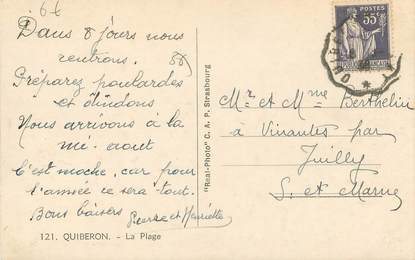 6f
Dans 8 jours nous
rentrons.
Préparez poulardes
et dindons
Nous arrivons à la
mi-aout
C'est moche, car pour
l'année ce sera tout.
Bons baisers Pierre et Henriette
121. QUIBERON. - La Plage
"Real-Photo" C. A. P. Strasbourg
POSTES
55
Mr et Mme Berthelin
à Vinantes par
Juilly
S. et Marne